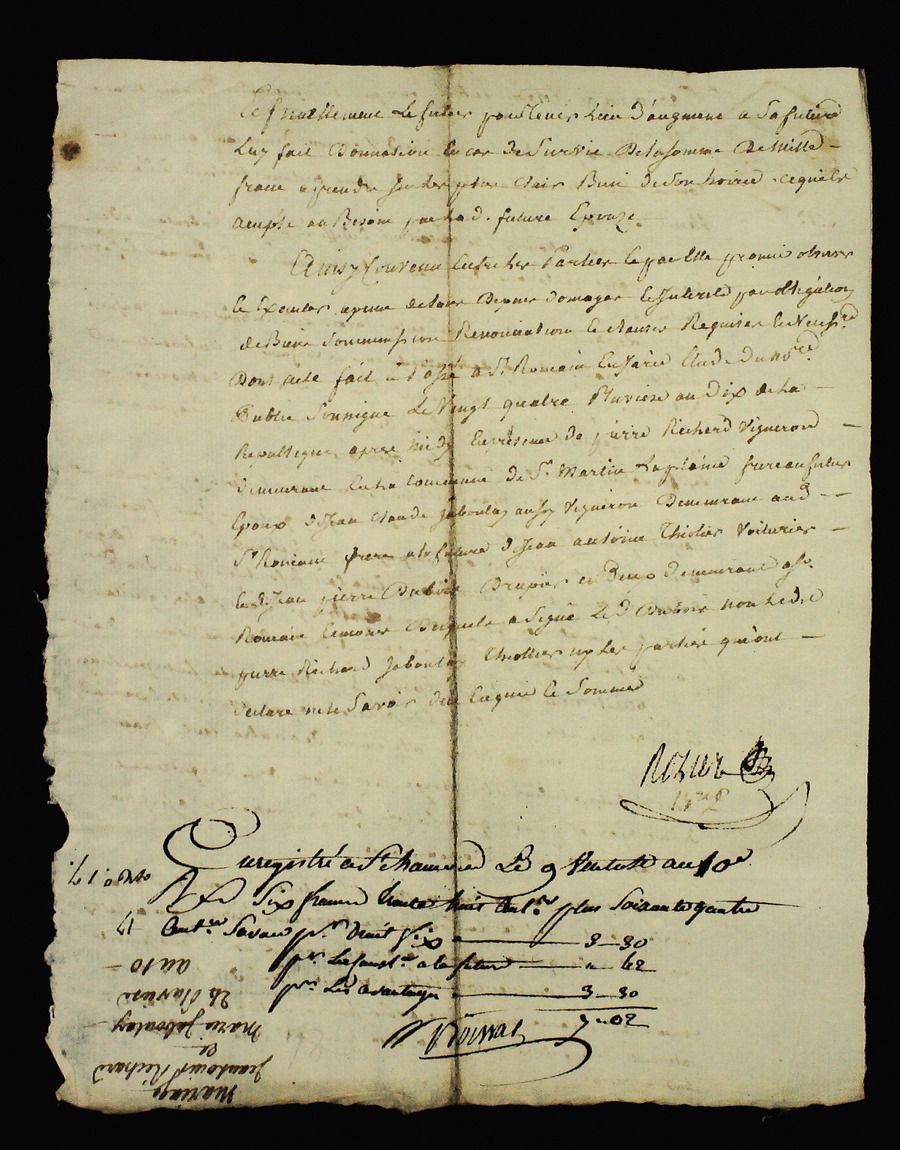 le futur pour tenir lieu d'augment a sa future
Luy fait Donnation En cas de Survie De la somme De mille
franc a prendre sur les plus Clairs Bien de Son hoirie ce qu'elle
accepte au Besoin par lad. future Epouze
Ainsy Convenu Entre les Parties Lesquelles promis observer
Et Executer a peine de tous Depens Domages Et Interest par obligation
de Biens Soummission Renonciation Et clauses Requises Et Necess.re
Dont acte fait & Passé a St Romain En Jarès Etude du no.re
Public Soussigné Le Vingt quatre Pluviose an Dix de La
Republique apres midy En présence de pierre Richard Vigneron
demeurant En la Commune de St Martin La plaine frere au futur
Epoux & Jean Claude Jaboulay aussy Vigneron Demeurant aud
St Romain frere a la future & Jean antoine Thiolier Voiturier
Et Jean pierre Dubois ces Deux demeurant a St
Romain temoins Desquels a Signé Le d Dubois non Ledit
pierre Richard Jaboulay Thiollier ny Les parties qui ont
Declaré ne le Savoir De ce Enquis Et Sommé
Rozier
Enregistré a St chamond Le 9 Ventose an 10e
Six francs trente huit Cent.es plus Soixante quatre
Cent.es Savoir pr. Droit fixe 3-30
pr. a la future " 42
pr. Les avantages 3-30
7-02
mariage
Jean Louis Richard
Et
Marie Jaboulay
24 Pluviose
an 10